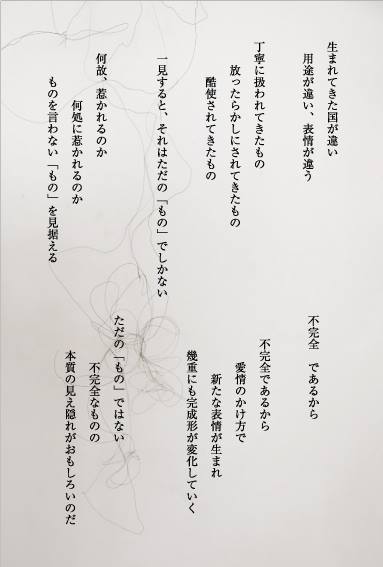 生まれてきた国が違い
用途が違い、表情が違う
丁寧に扱われてきたもの
放ったらかしにされてきたもの
酷使されてきたもの
一見すると、それはただの「もの」でしかない
何故、惹かれるのか
何処に惹かれるのか
ものを言わない「もの」を見据える
不完全　であるから
不完全であるから
愛情のかけ方で
新たな表情が生まれ
幾重にも完成形が変化していく
ただの「もの」ではない
不完全なものの
本質の見え隠れがおもしろいのだ